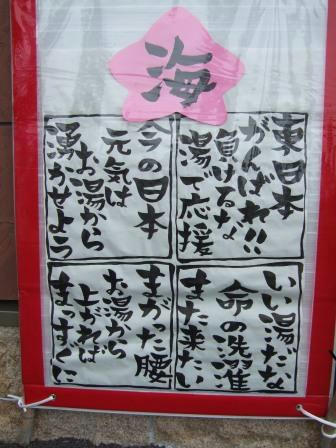 海
東日本
がんばれ!!
負けるな
湯で応援
今の日本
元気は
お湯から
湧かせよう
いい湯だな
命の洗濯
また来たい
まがった腰
お湯から
上がれば
まっすぐに